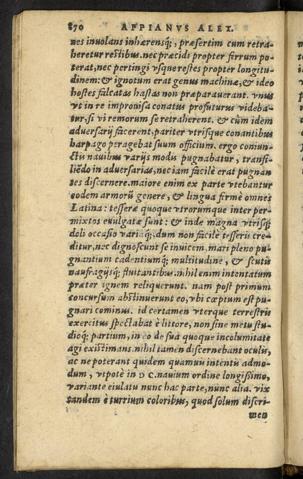 870 APPIANVS ALEX.
nes inuolans inhærensq́; præsertim cum retra-
heretur restibus. nec præcidi propter firrum po-
terat, nec pertingi vsq; ne restes propter longitu-
dinem: & ignotum erat genus machinæ, & ideo
hostes falcatas hastas non præparauerant. vnus
vt in re improuisa conatus profuturus videba-
tur, si vi remorum se retraherent. & cùm idem
aduersarij facerent, pariter vtrisque conantibus
harpago peragebat suum officium. ergo coniun-
ctis nauibus varijs modis pugnabatur, transi-
liẽdo in aduersarias, nec iam facilè erat pugnan
tes discernere. maiore enim ex parte vtebantur
eodem armorũ genere, & lingua firmè omnes
Latina: tesseræ quoque vtrorumque inter per-
mixtos euulgatæ sunt: & inde magna vtrisq́;
doli occasio variaq́;. dum non facile tesseris cre-
ditur, nec dignoscunt se inuicem, mari pleno pu-
gnantium cadentiumq́; multitudine, & scutis
naufragijsq́; fluitantibus. nihil enim intentatum
præter ignem reliquerunt. nam post primum
concursum abstinuerunt eo, vbi cœptum est pu-
gnari cominus. id certamen vterque terrestris
exercitus spectabat è littore, non sine metu stu-
dioq́; partium, in eo de suâ quoque incolumitate
agi existimans. nihil tamen discernebant oculis,
ac ne poterant quidem quamuis intentis admo-
dum, vtpotè in DC. nauium ordine longissimo,
variante eiulatu nunc hac parte, nunc alia. vix
tandem è turrium coloribus, quod solum discri-
men